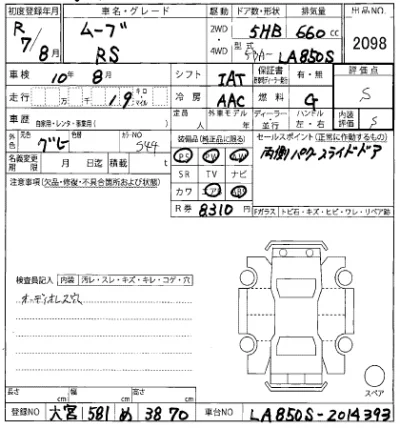 初度登録年月 車名・グレード 駆動 ドア数・形状 排気量 出品NO
R 7/8月 ムーブ RS 2WD・4WD 5HB 660cc 2098
型式 5BA-LA850S
車検 10年 8月 シフト IAT 保証書 有・無 評価点 S
走行 万 千 19 キロ・マイル 冷房 AAC 燃料 G
車歴 自家用・レンタ・事業用( ) 定員 人 外車モデル 年 ディーラー 並行 ハンドル 左・右 内装評価 S
外色 元色 グレー 色替 カラーNO S44 装備品(純正品に限る) セールスポイント(正常に作動するもの)
名義変更期限 月 日迄 積載 t PS PW AW 両側パワースライドドア
注意事項(欠品・修復・不具合箇所および状態) SR TV ナビ
カワ エアB ABS
R券 8310円 Fガラス トビ石・キズ・ヒビ・ワレ・リペア跡
検査員記入 内装 汚レ・スレ・キズ・キレ・コゲ・穴
オーディオレス
スペア
長さ cm 幅 cm 高さ cm
登録NO 大宮 581 め 3870 車台NO LA850S-2014393